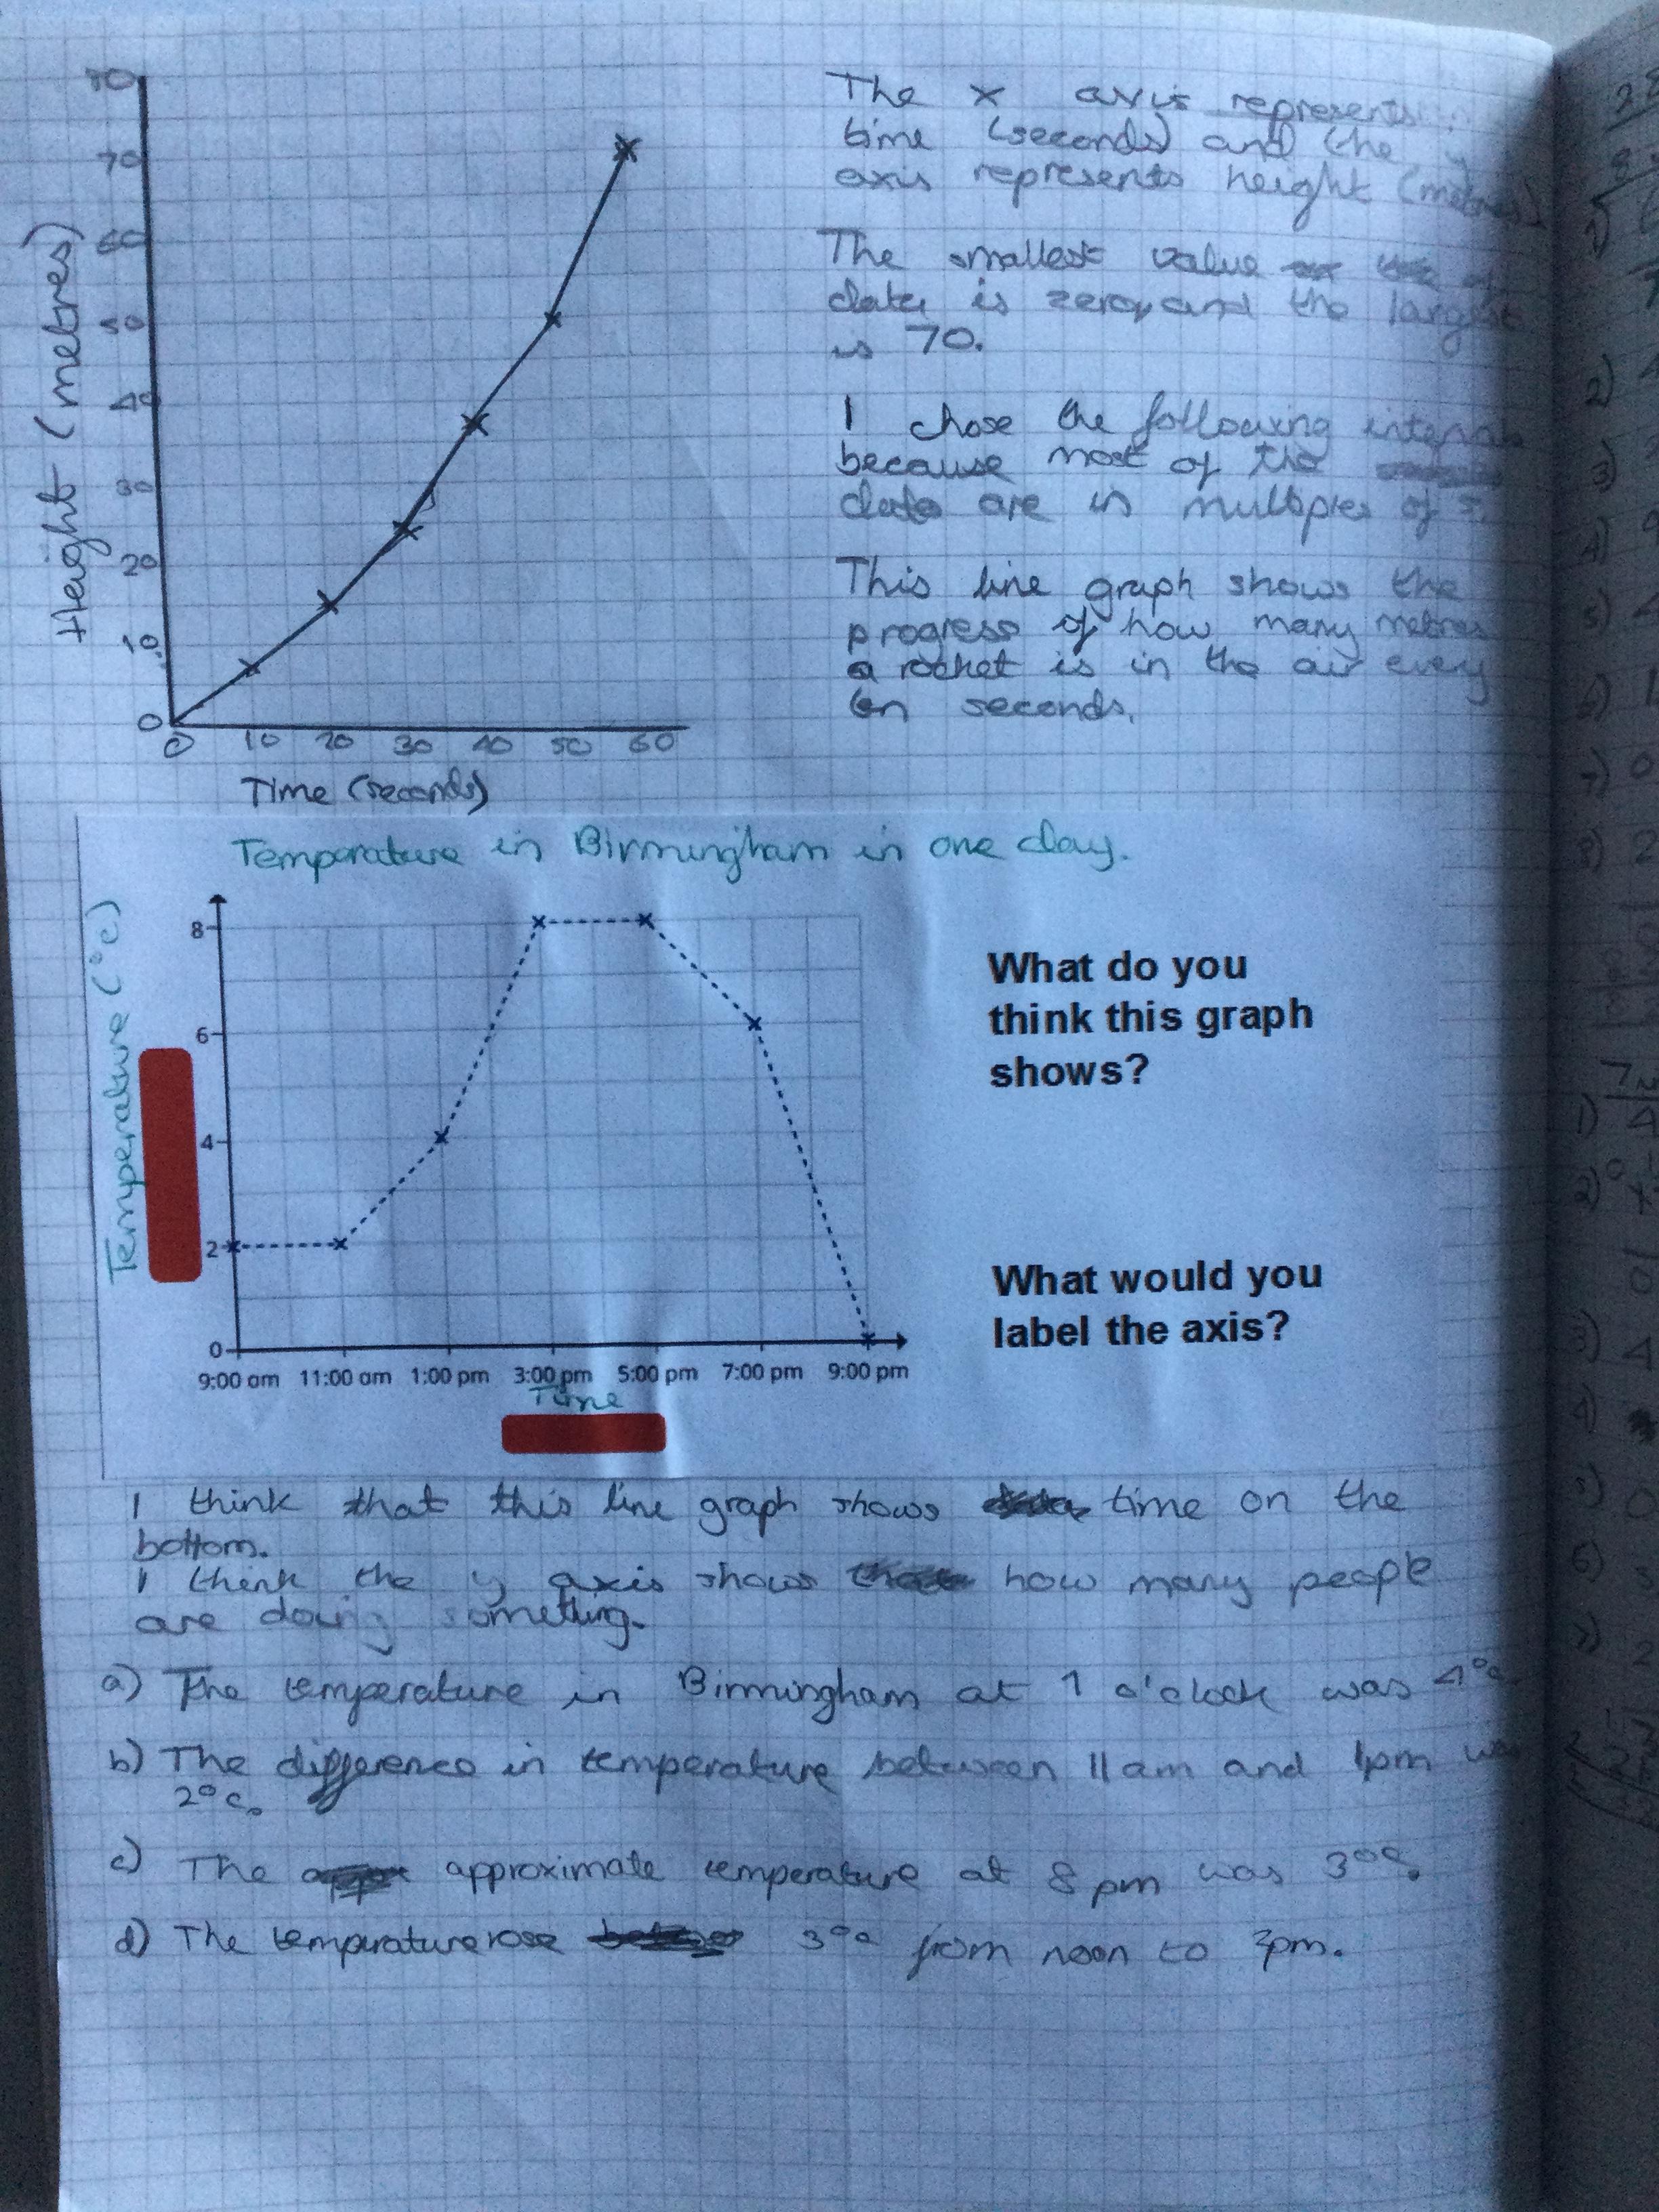 70
60
50
40
30
20
10
0
Height (metres)
0 10 20 30 40 50 60
Time (seconds)
The x axis represents
time (seconds) and the y
axis represents height (metres).
The smallest value of
data is zero, and the largest
is 70.
I chose the following intervals
because most of the
data are in multiples of 5.
This line graph shows the
progress of how many metres
a rocket is in the air every
ten seconds.
Temperature in Birmingham in one day.
Temperature (°c)
8
6
4
2
0
9:00 am 11:00 am 1:00 pm 3:00 pm 5:00 pm 7:00 pm 9:00 pm
Time
What do you
think this graph
shows?
What would you
label the axis?
I think that this line graph shows time on the
bottom.
I think the y axis shows how many people
are doing something.
a) The temperature in Birmingham at 1 o'clock was 4°c.
b) The difference in temperature between 11am and 1pm was
2°c.
c) The approximate temperature at 8pm was 3°c.
d) The temperature rose 3°c from noon to pm.